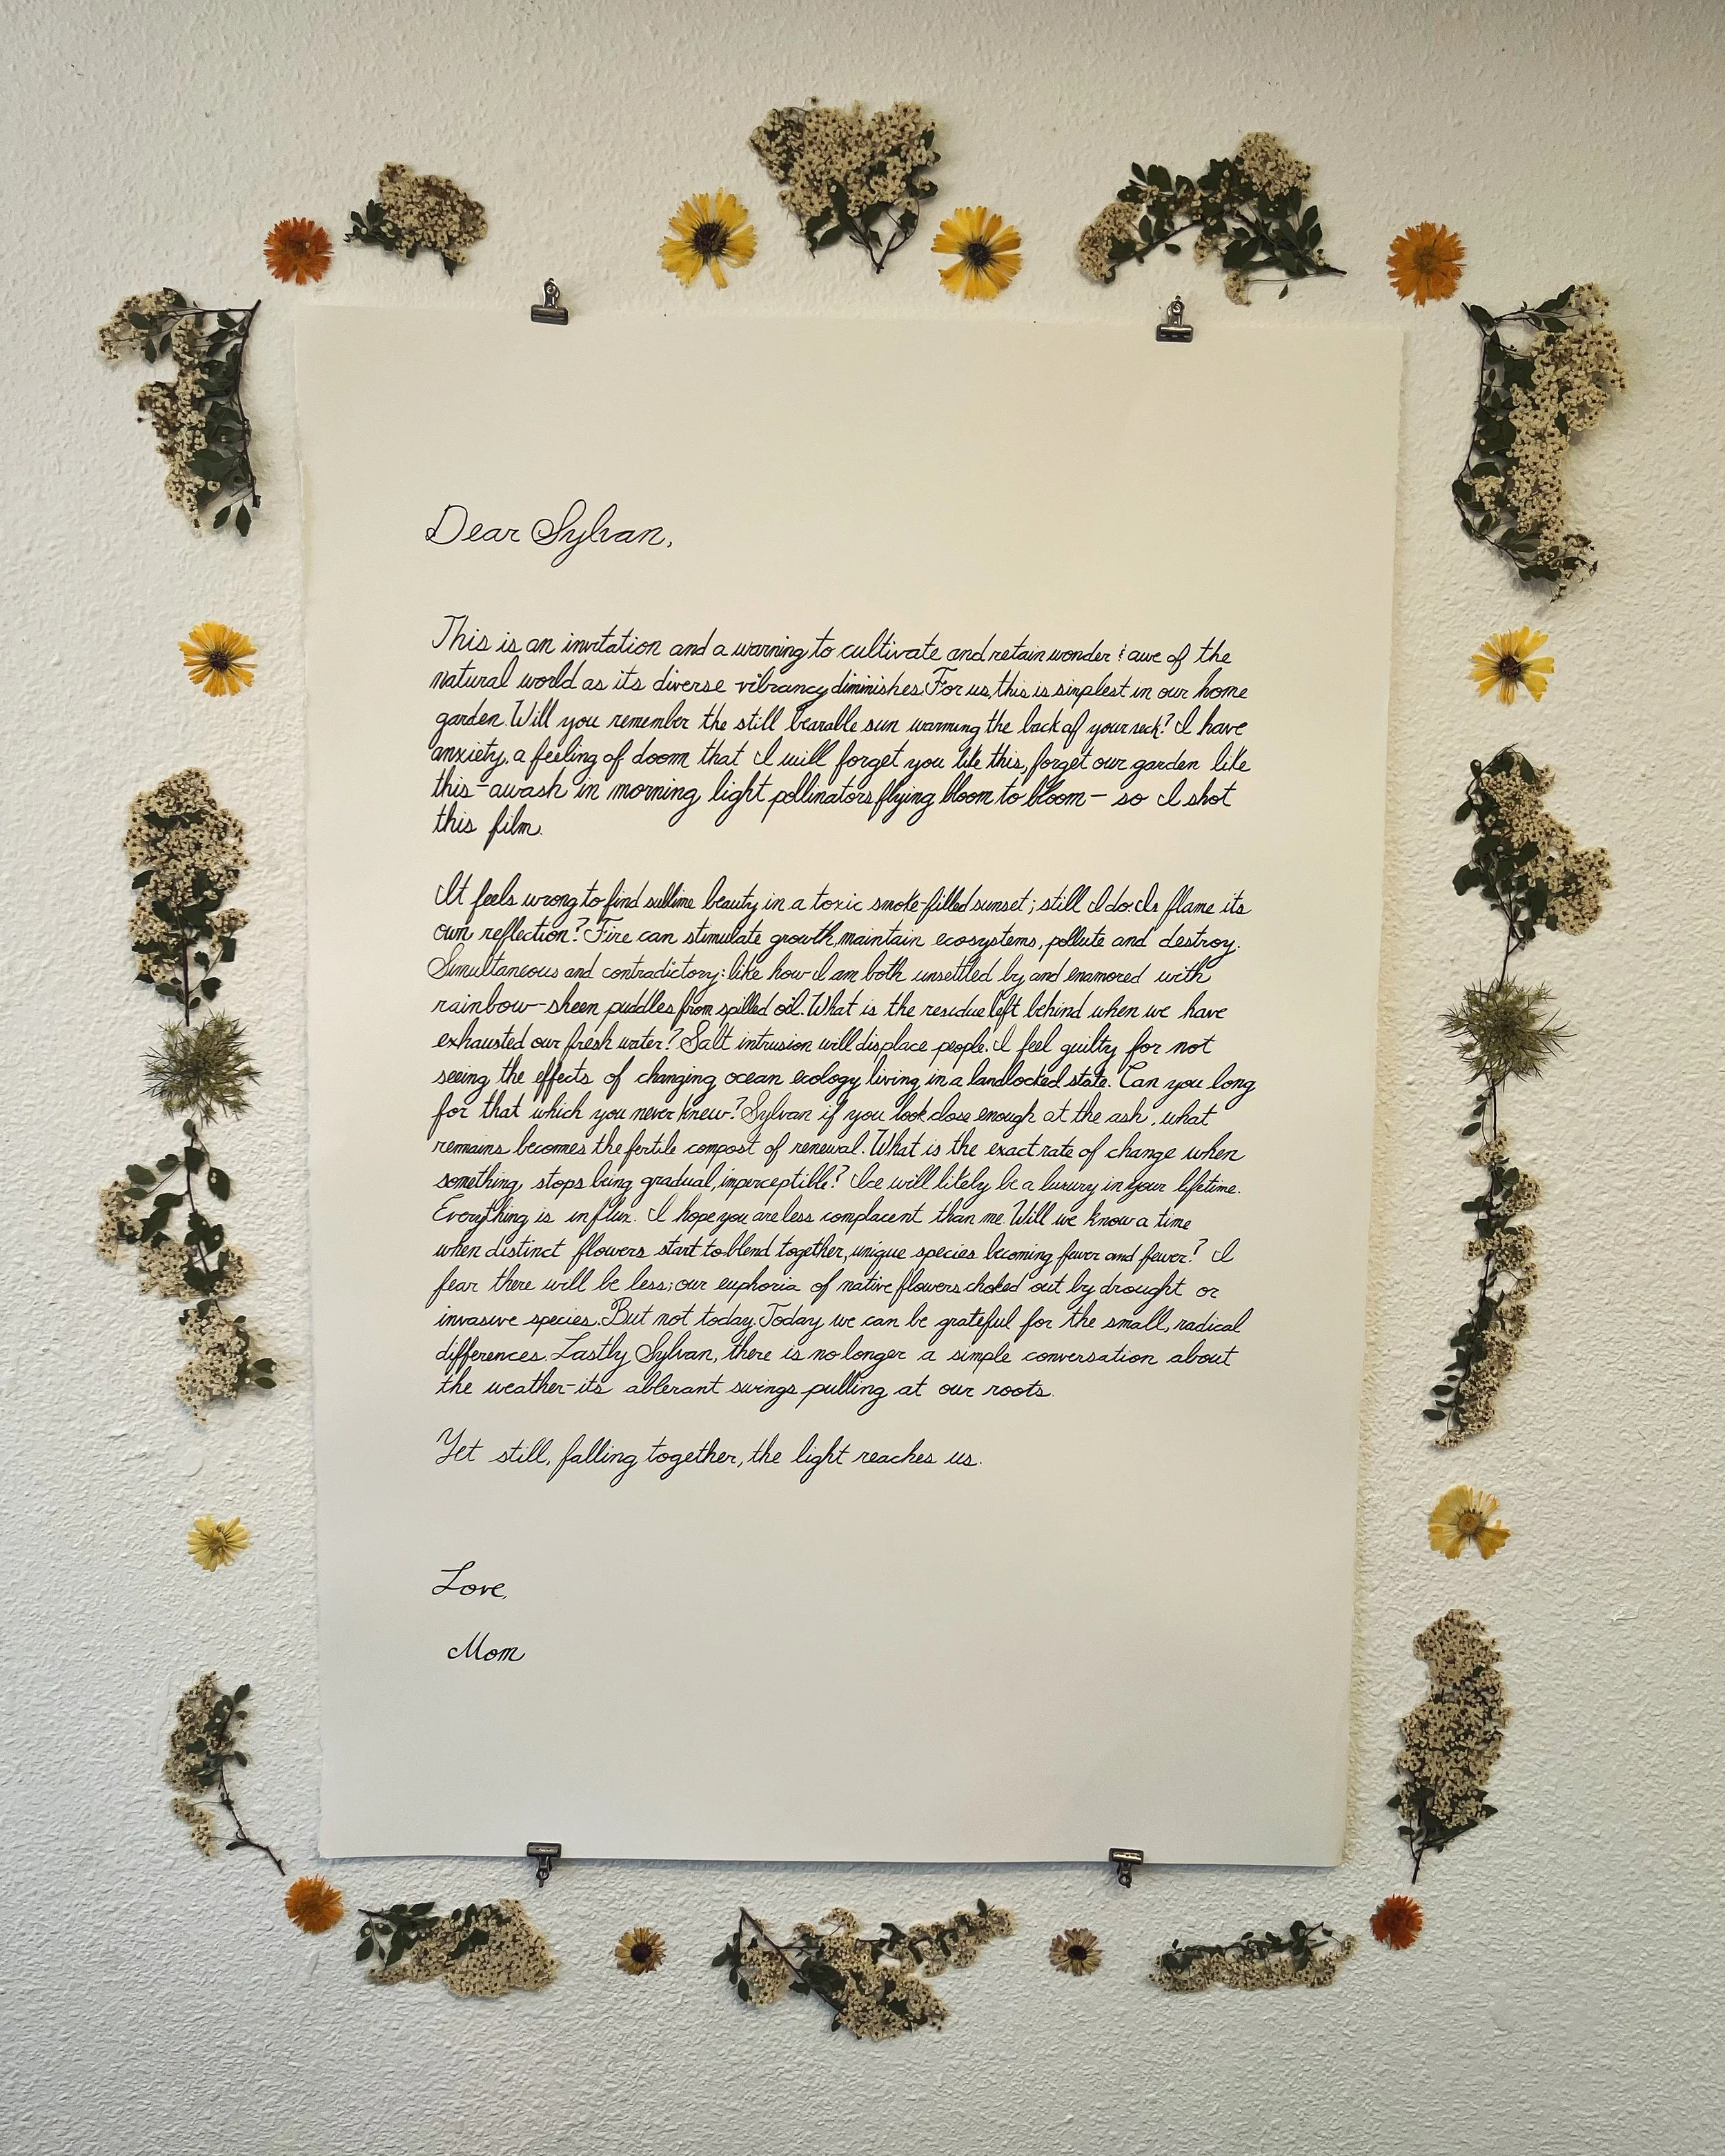 Dear Sylvan,
This is an invitation and a warning to cultivate and retain wonder & awe of the
natural world as its diverse vibrancy diminishes. For us, this is simplest in our home
garden. Will you remember the still bearable sun warming the back of your neck? I have
anxiety, a feeling of doom that I will forget you like this, forget our garden like
this-awash in morning light pollinators flying bloom to bloom— so I shot
this film.
It feels wrong to find sublime beauty in a toxic smoke-filled sunset; still I do. Is flame its
own reflection? Fire can stimulate growth, maintain ecosystems, pollute and destroy.
Simultaneous and contradictory: like how I am both unsettled by and enamored with
rainbow-sheen puddles from spilled oil. What is the residue left behind when we have
exhausted our fresh water? Salt intrusion will displace people. I feel guilty for not
seeing the effects of changing ocean ecology living in a landlocked state. Can you long
for that which you never knew? Sylvan if you look close enough at the ash, what
remains becomes the fertile compost of renewal. What is the exact rate of change when
something stops being gradual, imperceptible? Ice will likely be a luxury in your lifetime.
Everything is in flux. I hope you are less complacent than me. Will we know a time
when distinct flowers start to blend together, unique species becoming fewer and fewer? I
fear there will be less; our euphoria of native flowers choked out by drought or
invasive species. But not today. Today we can be grateful for the small, radical
differences. Lastly Sylvan, there is no longer a simple conversation about
the weather-its abberant swings pulling at our roots.
Yet still, falling together, the light reaches us.
Love,
Mom